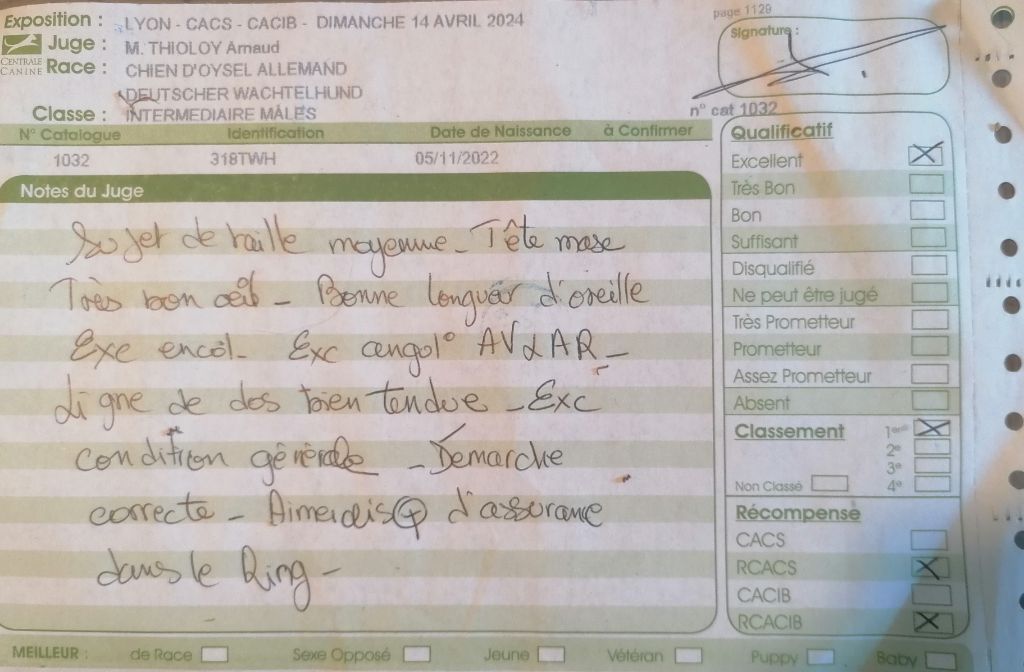 Exposition : LYON - CACS - CACIB - DIMANCHE 14 AVRIL 2024
page 1129
Juge : M. THIOLOY Arnaud
Signature :
CENTRALE CANINE
Race : CHIEN D'OYSEL ALLEMAND
DEUTSCHER WACHTELHUND
Classe : INTERMEDIAIRE MÂLES
n° cat 1032
N° Catalogue Identification Date de Naissance à Confirmer
1032 318TWH 05/11/2022
Notes du Juge
Sujet de taille moyenne - Tête masc
Très bon œil - Bonne longueur d'oreille
Exc encol - Exc angol° AV & AR -
Ligne de dos bien tendue - Exc
condition générale - Démarche
correcte - Aimerais + d'assurance
dans le Ring -
Qualificatif
Excellent X
Très Bon
Bon
Suffisant
Disqualifié
Ne peut être jugé
Très Prometteur
Prometteur
Assez Prometteur
Absent
Classement 1er X
2e
3e
Non Classé 4e
Récompense
CACS
RCACS X
CACIB
RCACIB X
MEILLEUR : de Race Sexe Opposé Jeune Vétéran Puppy Baby